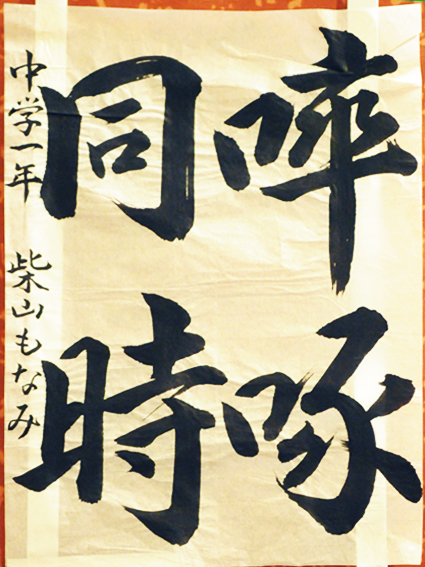 啐啄
同時
中学一年 柴山もなみ